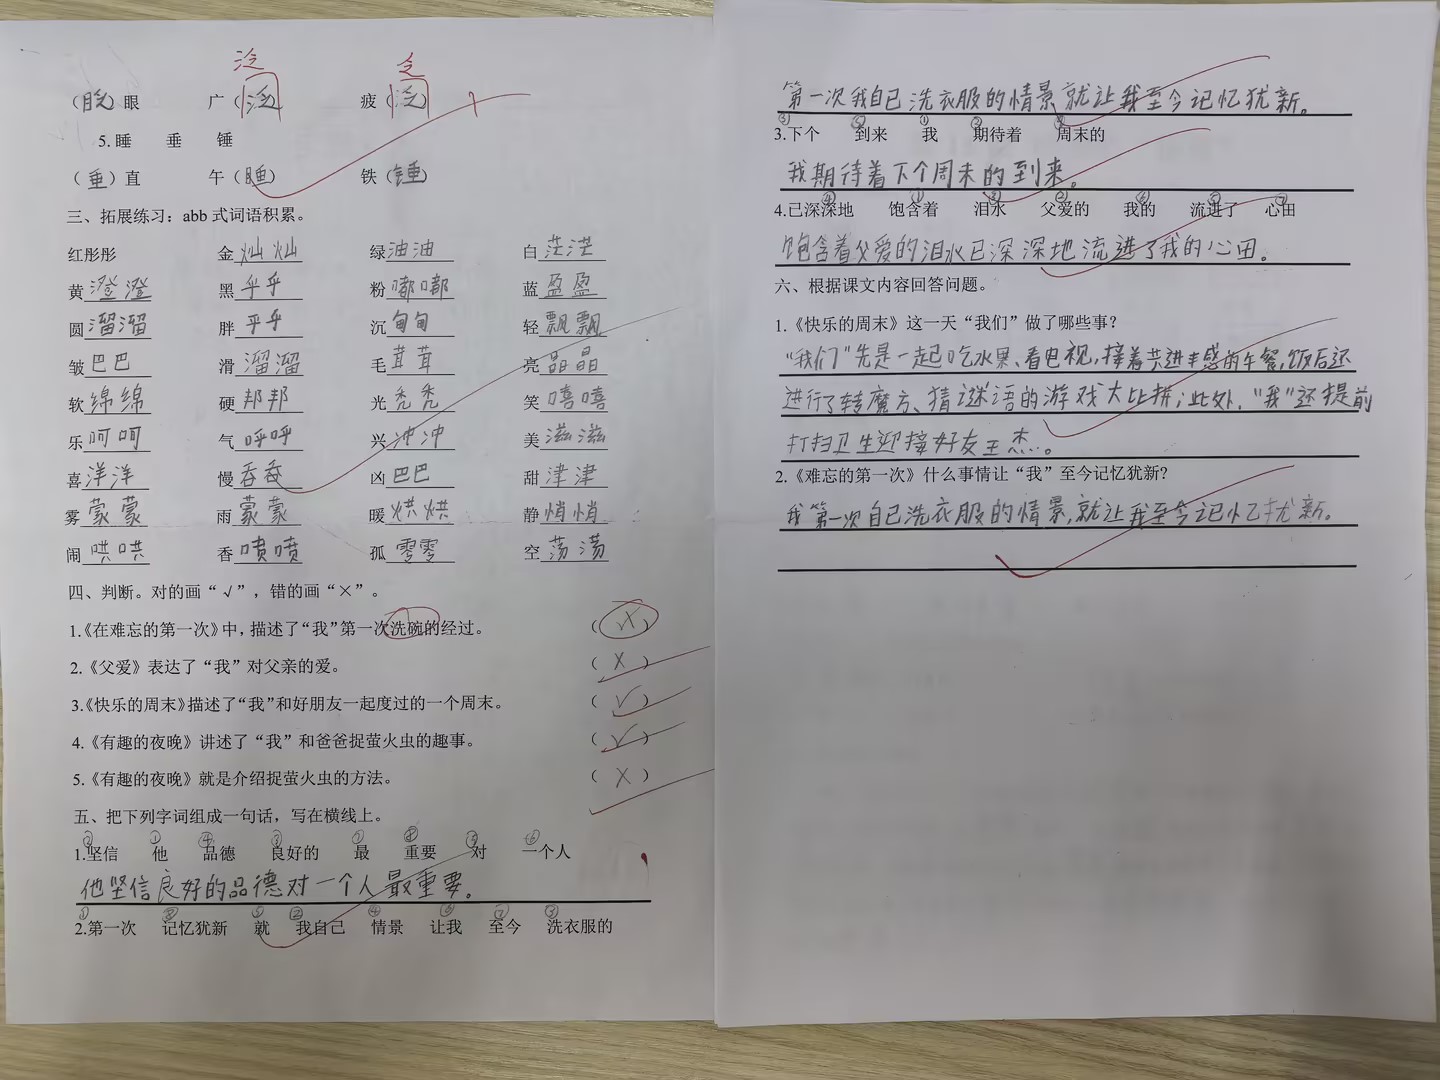 泛 乏
（晚）眼 广（泛） 疲（泛）
5. 睡 垂 锤
（垂）直 午（睡） 铁（锤）
三、拓展练习：abb 式词语积累。
红彤彤 金灿灿 绿油油 白茫茫
黄澄澄 黑乎乎 粉嘟嘟 蓝盈盈
圆溜溜 胖乎乎 沉甸甸 轻飘飘
皱巴巴 滑溜溜 毛茸茸 亮晶晶
软绵绵 硬邦邦 光秃秃 笑嘻嘻
乐呵呵 气呼呼 兴冲冲 美滋滋
喜洋洋 慢吞吞 凶巴巴 甜津津
雾蒙蒙 雨蒙蒙 暖烘烘 静悄悄
闹哄哄 香喷喷 孤零零 空荡荡
四、判断。对的画“√”，错的画“×”。
1.《在难忘的第一次》中，描述了“我”第一次洗碗的经过。（×）
2.《父爱》表达了“我”对父亲的爱。（×）
3.《快乐的周末》描述了“我”和好朋友一起度过的一个周末。（√）
4.《有趣的夜晚》讲述了“我”和爸爸捉萤火虫的趣事。（√）
5.《有趣的夜晚》就是介绍捉萤火虫的方法。（×）
五、把下列字词组成一句话，写在横线上。
1.坚信 他 品德 良好的 最 重要 对 一个人
他坚信良好的品德对一个人最重要。
2.第一次 记忆犹新 就 我自己 情景 让我 至今 洗衣服的
第一次我自己洗衣服的情景就让我至今记忆犹新。
3.下个 到来 我 期待着 周末的
我期待着下个周末的到来。
4.已深深地 饱含着 泪水 父爱的 我的 流进了 心田
饱含着父爱的泪水已深深地流进了我的心田。
六、根据课文内容回答问题。
1.《快乐的周末》这一天“我们”做了哪些事？
“我们”先是一起吃水果、看电视，接着共进丰盛的午餐，饭后还
进行了转魔方、猜谜语的游戏大比拼；此外，“我”还提前
打扫卫生迎接好友王杰。
2.《难忘的第一次》什么事情让“我”至今记忆犹新？
我第一次自己洗衣服的情景，就让我至今记忆犹新。